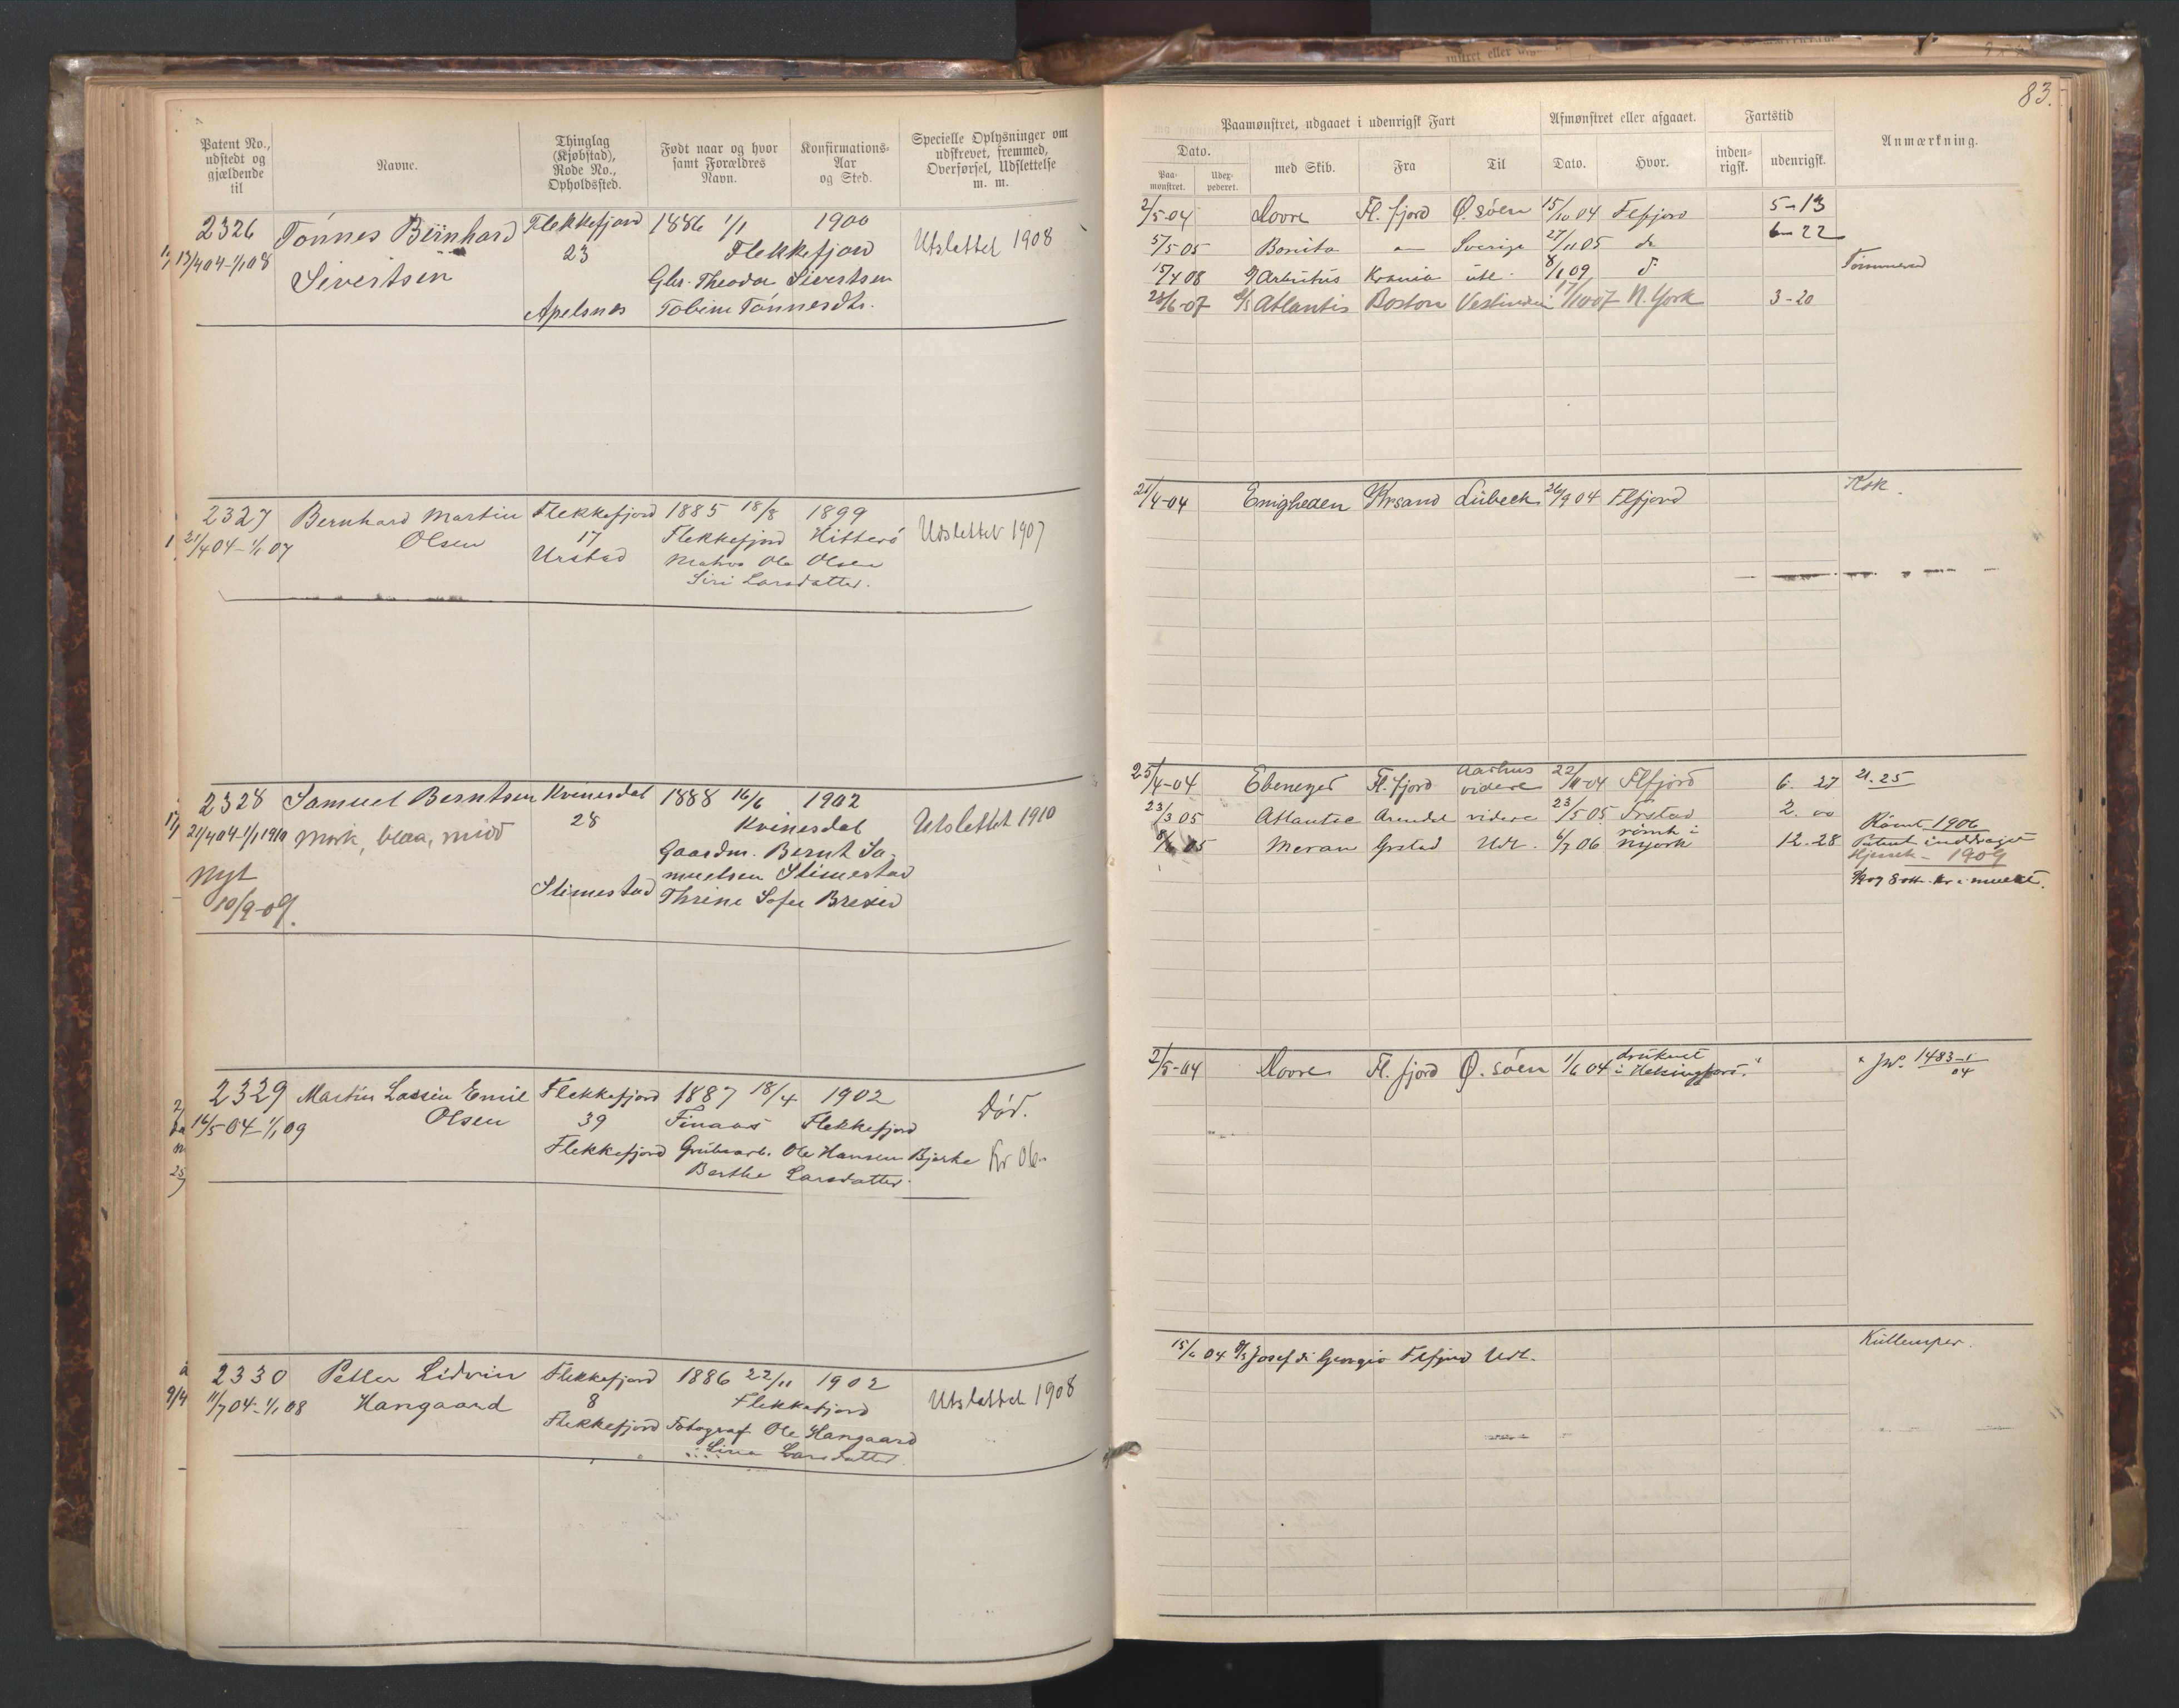 83.
Patent No.,
udstedt og
gjældende
til
Navne.
Thinglag
(Kjøbstad),
Rode No.,
Opholdssted.
Født naar og hvor
samt Forældres
Navn.
Konfirmations-
Aar
og Sted.
Specielle Oplysninger om
udskrevet, fremmed,
Overførsel, Udslettelse
m. m.
Paamønstret, udgaaet i udenrigsk Fart
Afmønstret eller afgaaet.
Fartstid
Anmærkning.
Dato.
Paa-
mønstret.
Udex-
pederet.
med Skib.
Fra
Til
Dato.
Hvor.
inden-
rigsk.
udenrigsk.
2326 Tönnes Bernhard Flekkefjord 1886 1/1 1900
13/4 04-1/1 08 Sivertsen 23 Flekkefjord Utslettet 1908
Theodor Sivertsen
Apelsnes Tobine Tönnesdtr.
2/5-04 Moore Fl. fjord Ø. søen 15/10 04 Flfjord 5-13
5/5 05 Bonita — Sverige 27/11 05 do 6-22
15/4 08 Arbutus Krania utl. 8/1 09 Tømmerm
28/6-07 Atlantis Boston Vestindien 17/10 07 N. York 3-20
2327 Bernhard Martin Flekkefjord 1885 18/8 1899
21/4 04-1/1 07 Olsen 17 Flekkefjord Hitterö Udslettet 1907
Urstad Matros Ole Olsen
Siri Larsdatter.
21/4-04 Enigheden Krsand Lübeck 26/9 04 Flfjord Kok
2328 Samuel Berntsen Kvinesdal 1888 16/6 1902
21/4 04-1/1 1910 mørk, blaa, midd 28 Kvinesdal Utslettet 1910
Gaardm. Bernt Sa-
Nyt muelsen Stimestad
10/9-09. Stimestad Thrine Sofie
25/4-04 Ebenezer Fl. fjord Aarhus videre 22/11-04 Flfjord 6. 27 21.25
23/3 05 Atlantic Arendal videre 23/5 05 Frstad 2. 00
Meran Grstad Udl. 6/7 06 rømt i Nyork 12-28 Rømt 1906
Patent inddraget
1909
2329 Martin Lassen Emil Flekkefjord 1887 18/4 1902 Död.
16/5-04-1/1 09 Olsen 39 Finaas Flekkefjord
Flekkefjord Grubearb. Ole Hansen Bjerke
Berthe Larsdatter.
2/5-04 Moore Fl. fjord Ø. söen 1/6 04 druknet
i Helsingfors. JNo. 1483-1/04
2330 Petter Lidvin Flekkefjord 1886 22/11 1902
11/7 04-1/1 08 Hangaard 8 Flekkefjord Utslettet 1908
Flekkefjord Fotograf Ole Hangaard
Sina Larsdatter.
04 Josef di Georgio Flfjord Udl. Kullemper.